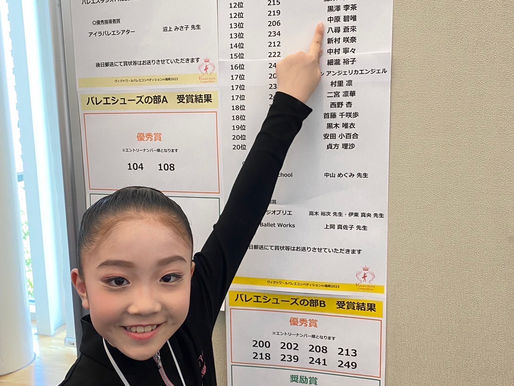 バレエスタジオ
◇優秀指導者賞
アイラバレエシアター 沼上 みさ子 先生
後日郵送にて賞状等はお送りさせていただきます
ヴィクトワールバレエコンペティションin福岡2023
バレエシューズの部A 受賞結果
優秀賞
※エントリーナンバー順となります
104 108
12位 215 黒澤 李茶
13位 219 中原 碧唯
13位 206 八尋 蒼采
新村 咲奈
中村 寧々
細瀧 裕子
アンジェリカエンジェル
村里 凛
17位 二宮 凛華
18位 西野 杏
19位 首藤 千咲歩
20位 黒木 唯衣
20位 安田 小百合
20位 貞方 理沙
chool 中山 めぐみ 先生
ジオブリエ 高木 裕次 先生・伊東 真央 先生
Ballet Works 上岡 真佐子 先生
後日郵送にて賞状等はお送りさせていただきます
ヴィクトワールバレエコンペティションin福岡2023
バレエシューズの部B 受賞結果
優秀賞
※エントリーナンバー順となります
200 202 208 213
218 239 241 249
奨励賞